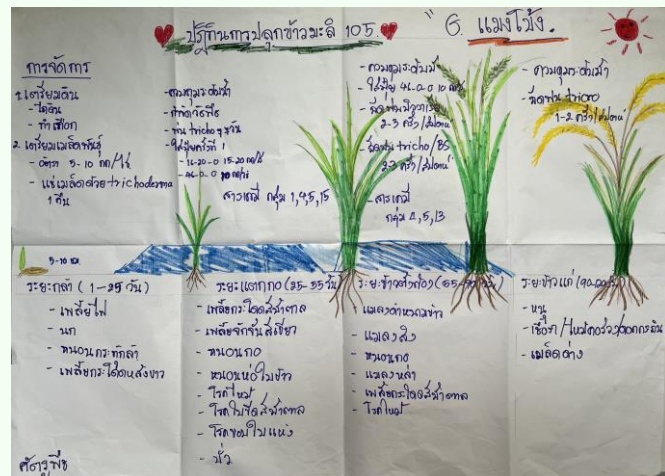 ปฏิทินการปลูกข้าวมะลิ 105.
"G. แมงโป้ง.
การจัดการ
1. เตรียมดิน
- ไถดิน
- ทำเทือก
2. เตรียมเมล็ดพันธุ์
- อัตรา 5-10 กก/ไร่
- แช่เมล็ดด้วย trichoderma
1 คืน
- ควบคุมระดับน้ำ
- กำจัดวัชพืช
- พ่น tricho
- ใส่ปุ๋ยครั้งที่ 1
- 16-20-0 15-20 กก/ไร่
- 46-0-0
สารเคมี กลุ่ม 1,4,5,15
- ควบคุมระดับน้ำ
- ใส่ปุ๋ย 46-0-0 10
2-3 ครั้ง/สัปดาห์
- ฉีดพ่น tricho/BS
2-3 ครั้ง/สัปดาห์
- สารเคมี
กลุ่ม 4,5,13
- ควบคุมระดับน้ำ
ฉีดพ่น tricho
1-2 ครั้ง/สัปดาห์
5-10 ซม
ระยะกล้า (1-25 วัน)
- เพลี้ยไฟ
- นก
- หนอนกระทู้กล้า
- เพลี้ยกระโดดหลังขาว
ระยะแตกกอ (25-55 วัน)
- เพลี้ยกระโดดสีน้ำตาล
- เพลี้ยจักจั่นสีเขียว
- หนอนกอ
- หนอนห่อใบข้าว
- โรคไหม้
- โรคใบขีดสีน้ำตาล
- โรคขอบใบแห้ง
- บั่ว
ระยะข้าวตั้งท้อง
- แมลงดำหนามข้าว
- แมลงสิง
- หนอนกอ
- แมลงหล่า
- เพลี้ยกระโดดสีน้ำตาล
- โรคไหม้
ระยะข้าวแก่
- หนู
- เมล็ดด่าง
ศัตรูพืช